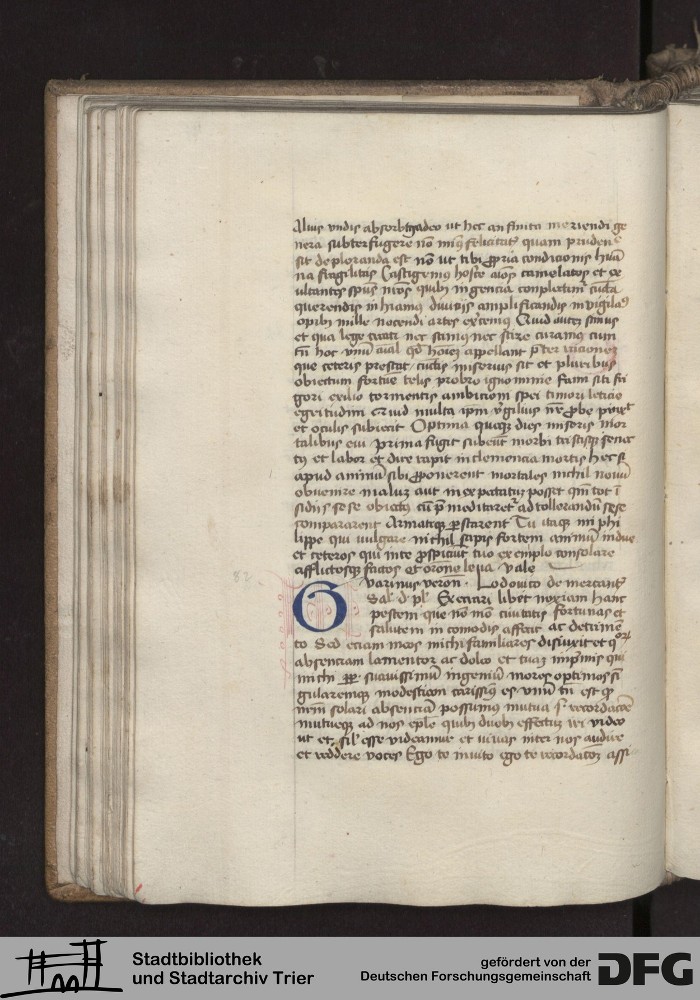 Alius undis absorbtus adeo ut hec an finita moriendi ge
nera subterfugere nō minꝰ felicitatꝭ quam prudencie
sit deploranda est nō ut tibi ꝓpria condicionis huā
na fragilitas Castigemus hosce aīos tumelatos et ex
ultantes spūs nr̄os quibꝫ ingencia complectimꝛ cūcta
querendis inhiamꝰ diviciis amplificandis invigilaꝰ
opibꝫ mille nocendi artes exꝛcemꝰ Quid autem simus
et qua lege creati nec scimus nec scire curamus cum
tn̄ hoc unū aīal qd̄ hoīem appellant ꝓpter racionem
que ceteris prestat cunctis miserius sit et pluribus
obiectum fortune telis probro ignominie fami siti fri
gori exilio tormentis ambicioni spei timori leticie
egritudini Quid multa ipm̄ Virgilius nr̄ ꝓbe pinxit
et oculis subiecit Optima queqꝫ dies miseris mor
talibus evi prima fugit subeūt morbi tristisqꝫ senec
tꝰ et labor et dure rapit inclemencia mortis hec si
apud animū sibi ꝓponerent mortales nichil novū
obvenire malūqꝫ aut inexpectatū posset qm̄ tot ī
sidiis sese obiectꝰ cū p̄meditaretꝛ ad tollerandū sese
compararent Armatiqꝫ ꝑstarent Tu itaqꝫ mi phi
lippe qui vulgare nichil sapis fortem animū indue
et ceteros qui in te ꝓspiciūt tuo exemplo consolare
afflictosqꝫ factos et orone leva Vale
82
Guarinus veron. Lodovico de mercantꝭ
Sal. d. pl. Execrari libet noxiam hanc
pestem que nō mō civitatis fortunas et
salutem incomodis affecit ac detrimē
to Sed eciam meos michi familiares disiunxit et quorꝫ
absenciam lamentor ac doleo et tuam inprimis qui
michi ꝓpꝛ suavissimū ingeniū mores optimos sī
gularemqꝫ modestiam carissimꝰ es unū tn̄ est quo
nr̄m solari absenciā possumus mutua .s. recordacōe
mutueqꝫ ad nos epl̄e quibꝫ duobꝫ effectum iri video
ut et sil̄ esse videamur et vivas inter nos audire
et reddere voces Ego te invito ego te recordacōe assi
Stadtbibliothek
und Stadtarchiv Trier
gefördert von der
Deutschen Forschungsgemeinschaft
DFG